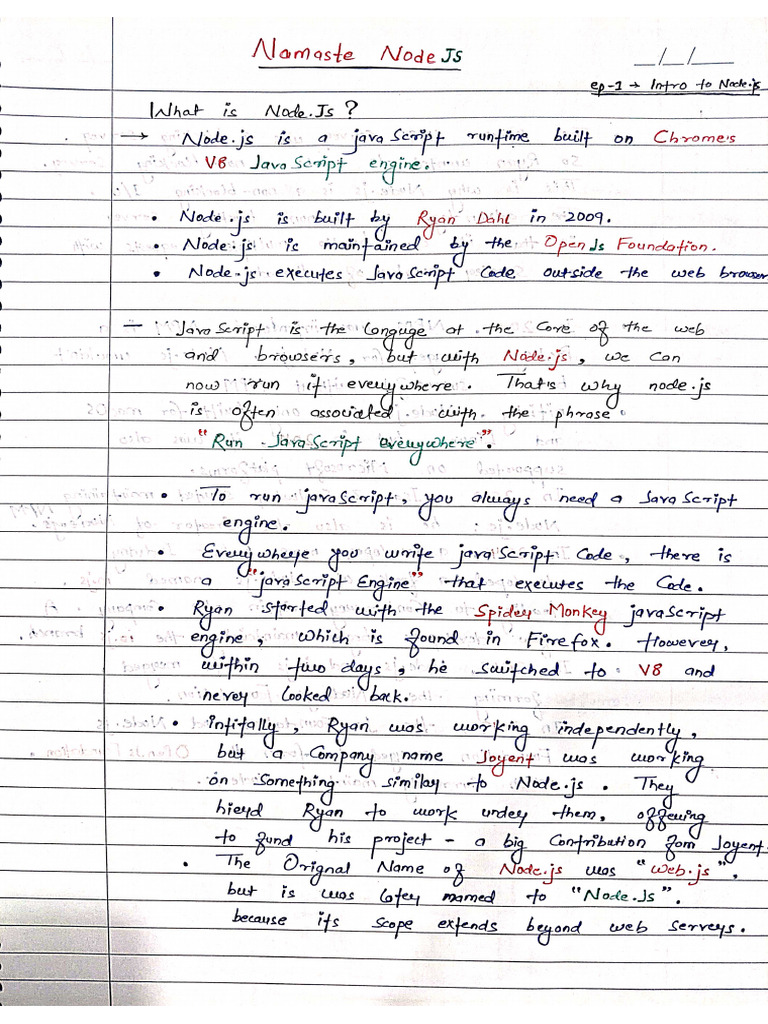 Namaste Node JS
__/__/____
ep-1 → Intro to Node.js
What is Node.Js ?
→ Node.js is a javaScript runtime built on Chrome's
V8 JavaScript engine.
• Node.js is built by Ryan Dahl in 2009.
• Node.js is maintained by the OpenJs Foundation.
• Node.js executes JavaScript Code outside the web browser
– JavaScript is the longuge at the Core of the web
and browsers, but with Node.js, we can
now run it everywhere. That's why node.js
is often associated with the phrase
"Run JavaScript everywhere".
• To run javaScript, you always need a JavaScript
engine.
• Everywhere you write javaScript Code, there is
a "javaScript Engine" that executes the Code.
• Ryan started with the Spider Monkey javaScript
engine, which is found in Firefox. However,
within two days, he switched to V8 and
never looked back.
• intifally, Ryan was working independently,
but a Company name Joyent was working
on Something similar to Node.js. They
hieyd Ryan to work under them, offering
to fund his project - a big Contribution fom Joyent.
• The Orignal Name of Node.js was "Web.js",
but is was later mamed to "Node.Js".
because its scope extends beyond web servers.